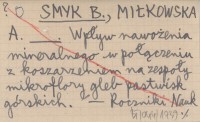 ? O SMYK B., MIŁKOWSKA
A. —. Wpływ nawożenia
mineralnego w połączeniu
z koszarzeniem na zespoły
mikroflory gleb pastwisk
górskich. — Roczniki Nauk